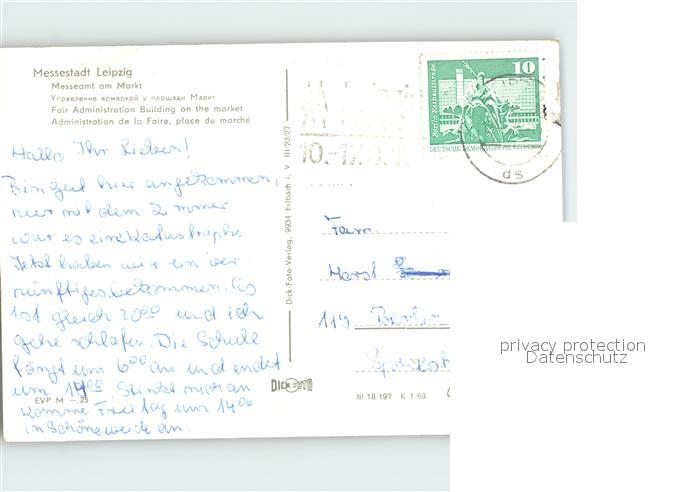 Messestadt Leipzig
Messeamt am Markt
Управление ярмаркой у площади Маркт
Fair Administration Building on the market
Administration de la Foire, place du marché
Hallo Ihr Lieben!
Bin gut hier angekommen,
nur mit dem Zimmer
war es eine Katastrophe
Jetzt haben wir ein ver-
nünftiges bekommen. Es
ist gleich 2000 und ich
gehe schlafen. Die Schule
fängt um 600 an und endet
um 1400.
Komme Freitag um 1400
in Schöneweide an.
EVP M —.25
Dick-Foto-Verlag, 9934 Erlbach i. V. III/23/27
DICK FOTO
10.-17.3.
Berlin
10
DEUTSCHE DEMOKRATISCHE REPUBLIK
ds
Fam.
Horst
119 Berlin
III 18 197 K 1/69
privacy protection
Datenschutz